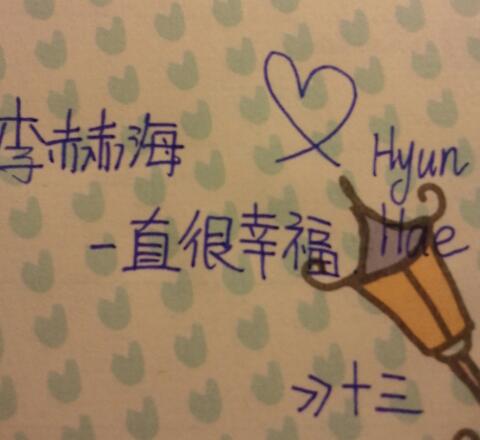 李赫海
Hyun
一直很幸福.
Hae
》十三